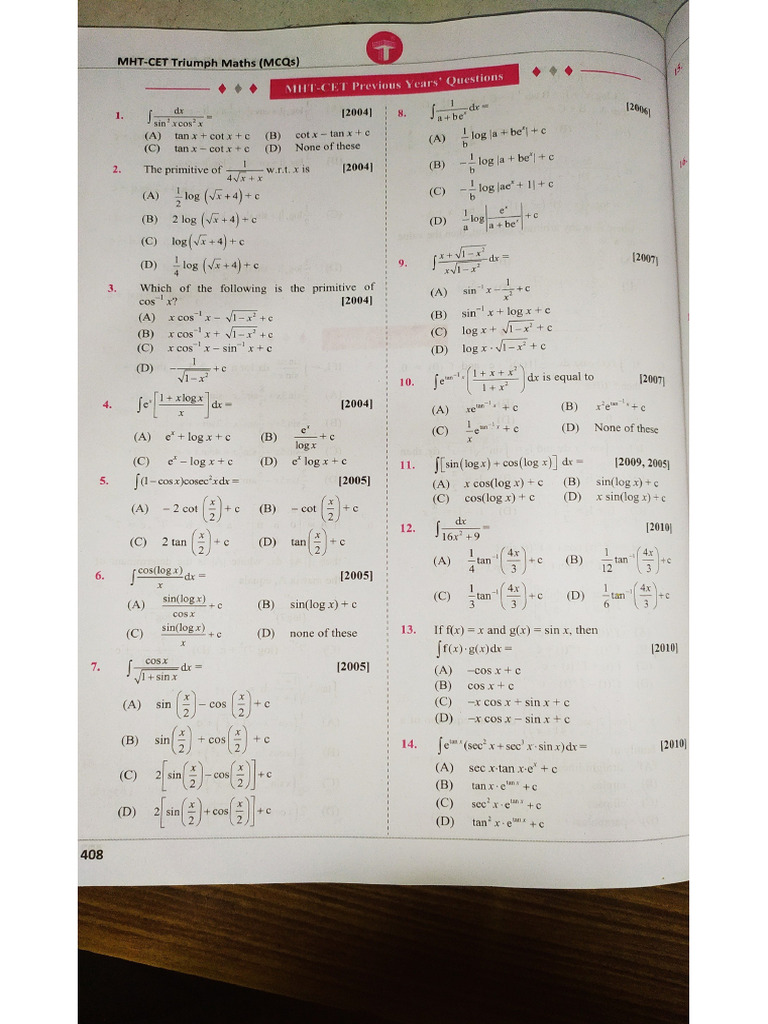 MHT-CET Triumph Maths (MCQs)
T
MHT-CET Previous Years' Questions
1. ∫ dx / (sin² x cos² x) = [2004]
(A) tan x + cot x + c (B) cot x – tan x + c
(C) tan x – cot x + c (D) None of these
2. The primitive of 1 / (4√x + x) w.r.t. x is [2004]
(A) 1/2 log (√x + 4) + c
(B) 2 log (√x + 4) + c
(C) log (√x + 4) + c
(D) 1/4 log (√x + 4) + c
3. Which of the following is the primitive of
cos⁻¹ x? [2004]
(A) x cos⁻¹ x – √(1 – x²) + c
(B) x cos⁻¹ x + √(1 – x²) + c
(C) x cos⁻¹ x – sin⁻¹ x + c
(D) – 1 / √(1 – x²) + c
4. ∫ eˣ [(1 + x log x) / x] dx = [2004]
(A) eˣ + log x + c (B) eˣ / log x + c
(C) eˣ – log x + c (D) eˣ log x + c
5. ∫ (1 – cos x) cosec² x dx = [2005]
(A) – 2 cot (x/2) + c (B) – cot (x/2) + c
(C) 2 tan (x/2) + c (D) tan (x/2) + c
6. ∫ cos(log x) / x dx = [2005]
(A) sin(log x) / cos x + c (B) sin(log x) + c
(C) sin(log x) / x + c (D) none of these
7. ∫ cos x / √(1 + sin x) dx = [2005]
(A) sin (x/2) – cos (x/2) + c
(B) sin (x/2) + cos (x/2) + c
(C) 2[sin (x/2) – cos (x/2)] + c
(D) 2[sin (x/2) + cos (x/2)] + c
408
8. ∫ 1 / (a + beˣ) dx = [2006]
(A) 1/b log |a + beˣ| + c
(B) – 1/b log |a + beˣ| + c
(C) – 1/b log |aeˣ + 1| + c
(D) 1/a log |eˣ / (a + beˣ)| + c
9. ∫ (x + √(1 – x²)) / (x√(1 – x²)) dx = [2007]
(A) sin⁻¹ x – 1/x² + c
(B) sin⁻¹ x + log x + c
(C) log x + √(1 – x²) + c
(D) log x · √(1 – x²) + c
10. ∫ e^(tan⁻¹ x) ((1 + x + x²) / (1 + x²)) dx is equal to [2007]
(A) xe^(tan⁻¹ x) + c (B) x²e^(tan⁻¹ x) + c
(C) 1/x e^(tan⁻¹ x) + c (D) None of these
11. ∫ [sin(log x) + cos(log x)] dx = [2009, 2005]
(A) x cos(log x) + c (B) sin(log x) + c
(C) cos(log x) + c (D) x sin(log x) + c
12. ∫ dx / (16x² + 9) = [2010]
(A) 1/4 tan⁻¹ (4x/3) + c (B) 1/12 tan⁻¹ (4x/3) + c
(C) 1/3 tan⁻¹ (4x/3) + c (D) 1/6 tan⁻¹ (4x/3) + c
13. If f(x) = x and g(x) = sin x, then
∫ f(x) · g(x) dx = [2010]
(A) –cos x + c
(B) cos x + c
(C) –x cos x + sin x + c
(D) –x cos x – sin x + c
14. ∫ e^(tan x) (sec² x + sec³ x · sin x) dx = [2010]
(A) sec x·tan x·eˣ + c
(B) tan x · e^(tan x) + c
(C) sec² x · e^(tan x) + c
(D) tan² x · e^(tan x) + c